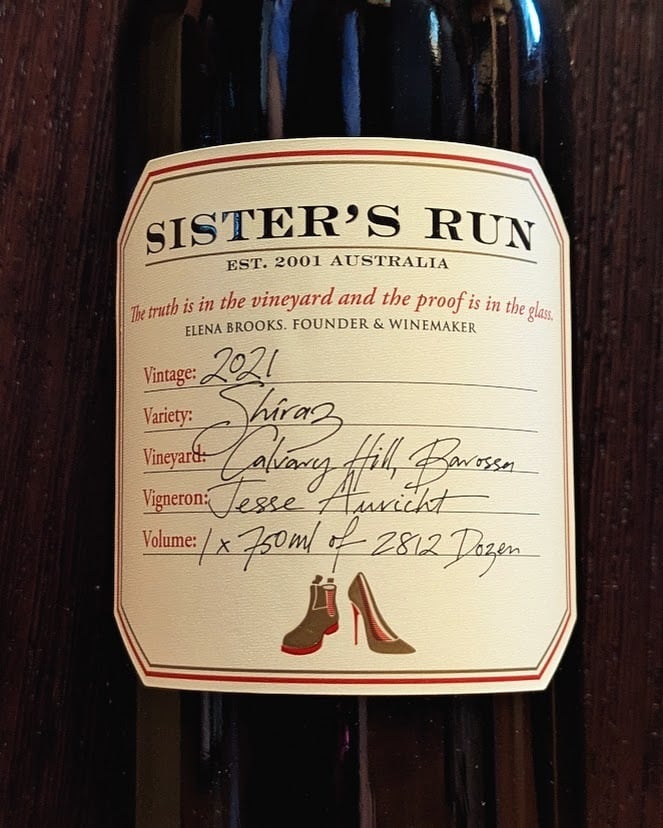 SISTER'S RUN
EST. 2001 AUSTRALIA
The truth is in the vineyard and the proof is in the glass.
ELENA BROOKS. FOUNDER & WINEMAKER
Vintage: 2021
Variety: Shiraz
Vineyard: Calvary Hill, Barossa
Vigneron: Jesse Auricht
Volume: 1 x 750ml of 2812 Dozen